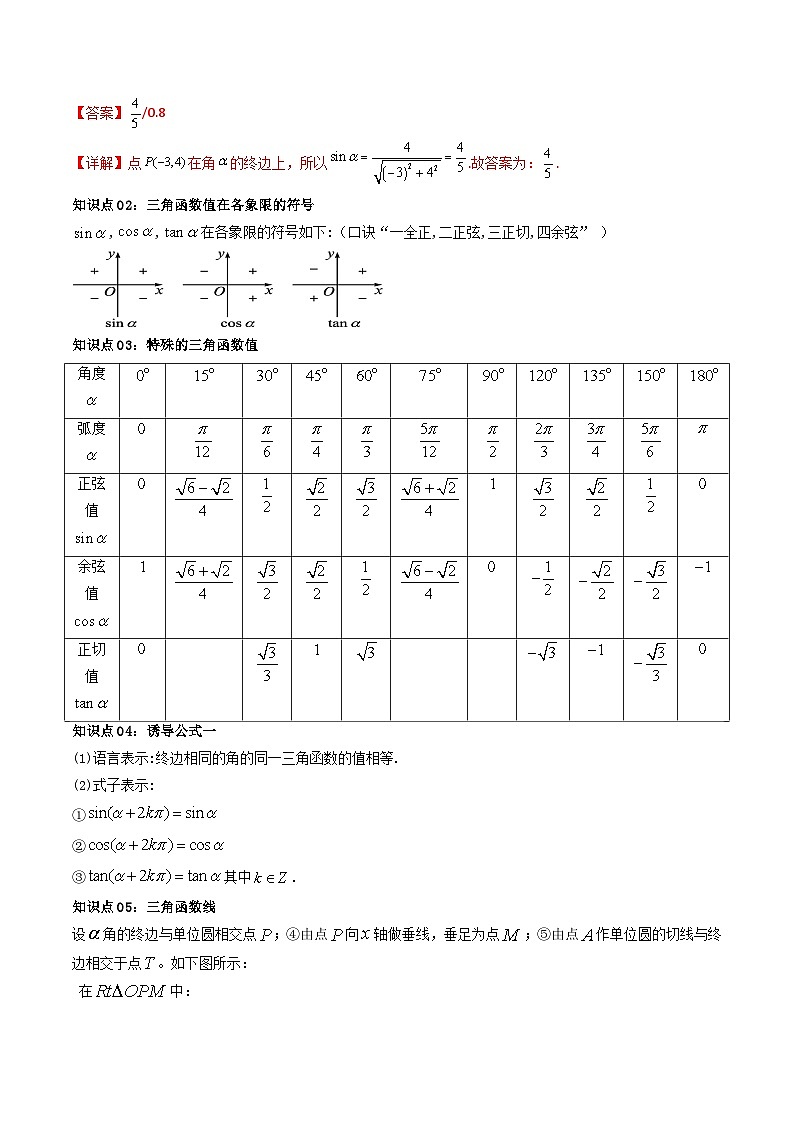 【答案】4/5/0.8
【详解】点P(−3,4)在角α的终边上，所以sin α = 4/√((−3)²+4²) = 4/5.故答案为：4/5.
知识点02：三角函数值在各象限的符号
sin α，cos α，tan α在各象限的符号如下：(口诀“一全正,二正弦,三正切,四余弦” )
y y y
+ + − + − +
O x O x O x
− − − + + −
sin α cos α tan α
知识点03：特殊的三角函数值
角度α 0° 15° 30° 45° 60° 75° 90° 120° 135° 150° 180°
弧度α 0 π/12 π/6 π/4 π/3 5π/12 π/2 2π/3 3π/4 5π/6 π
正弦值sin α 0 (√6−√2)/4 1/2 √2/2 √3/2 (√6+√2)/4 1 √3/2 √2/2 1/2 0
余弦值cos α 1 (√6+√2)/4 √3/2 √2/2 1/2 (√6−√2)/4 0 −1/2 −√2/2 −√3/2 −1
正切值tan α 0 √3/3 1 √3 −√3 −1 −√3/3 0
知识点04：诱导公式一
(1)语言表示:终边相同的角的同一三角函数的值相等.
(2)式子表示:
①sin(α+2kπ)=sin α
②cos(α+2kπ)=cos α
③tan(α+2kπ)=tan α其中k∈Z．
知识点05：三角函数线
设α角的终边与单位圆相交点P；④由点P向x轴做垂线，垂足为点M；⑤由点A作单位圆的切线与终
边相交于点T。如下图所示：
在RtΔOPM中：